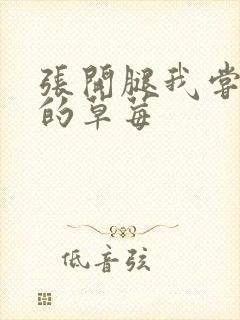 張開腿我嘗
的草莓
低音弦